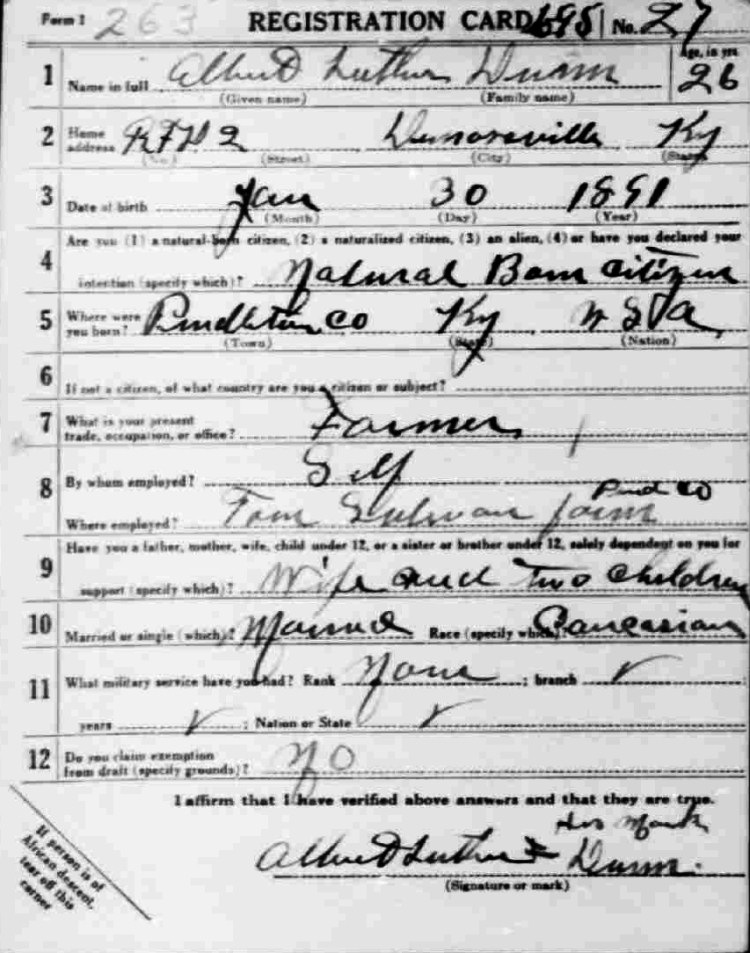 Form 1 263 REGISTRATION CARD No. 27
1 Name in full Albert Luther Dunn Age, in yrs 26
(Given name) (Family name)
2 Home address RFD 2 Demossville Ky
(No.) (Street) (City) (State)
3 Date of birth Jan 30 1891
(Month) (Day) (Year)
Are you (1) a natural-born citizen, (2) a naturalized citizen, (3) an alien, (4) or have you declared your
4 intention (specify which)? Natural Born Citizen
5 Where were you born? Pendleton Co Ky U S A
(Town) (State) (Nation)
6 If not a citizen, of what country are you a citizen or subject?
7 What is your present trade, occupation, or office? Farmer
8 By whom employed? Self
Pend Co
Where employed? Tom farm
Have you a father, mother, wife, child under 12, or a sister or brother under 12, solely dependent on you for
9 support (specify which)? Wife and two Children
10 Married or single (which)? Married Race (specify which)? Caucasian
11 What military service have you had? Rank None ; branch ✓
years ✓ ; Nation or State ✓
12 Do you claim exemption from draft (specify grounds)? No
I affirm that I have verified above answers and that they are true.
His Mark
Albert Luther X Dunn.
(Signature or mark)
If person is of
African descent,
tear off this
corner